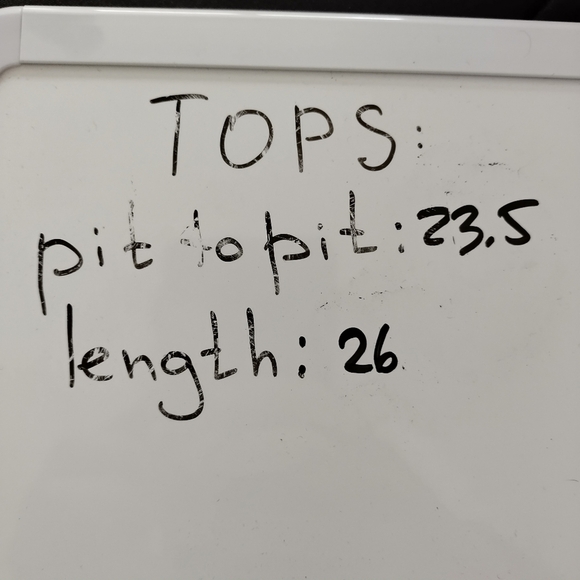 TOPS:
pit to pit: 23.5
length: 26